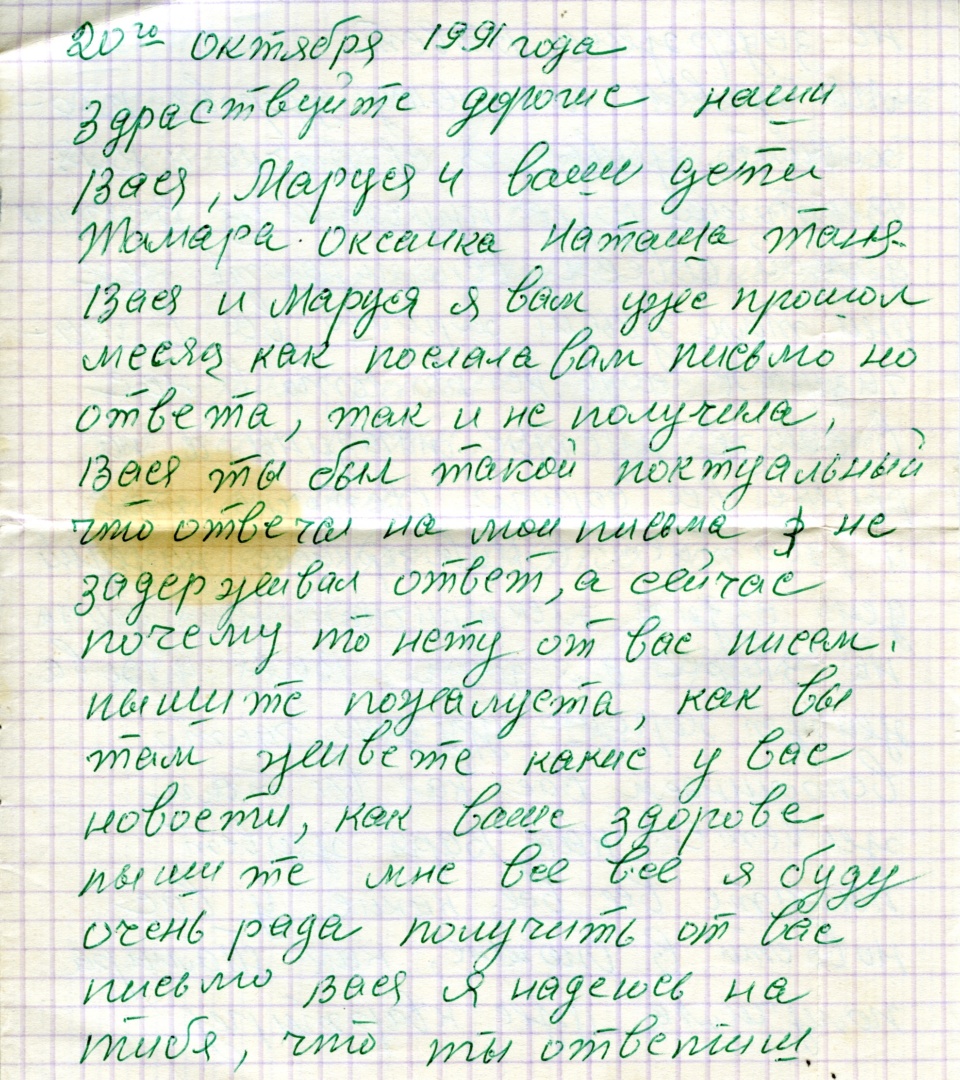 20го октября 1991 года
Здраствуйте дорогие наши
Вася, Маруся и ваши дети
Тамара. Оксанка Наташа Таня.
Вася и Маруся я вам уже прошол
месяц как послала вам письмо но
ответа, так и не получила,
Вася ты был такой поктуальный
что отвечал на мои письма не
задерживал ответ, а сейчас
почему то нету от вас писем.
пышите пожалуста, как вы
там живете какие у вас
новости, как ваше здорове
пышите мне все все я буду
очень рада получить от вас
письмо Вася я надеюсь на
тибя, что ты ответиш.